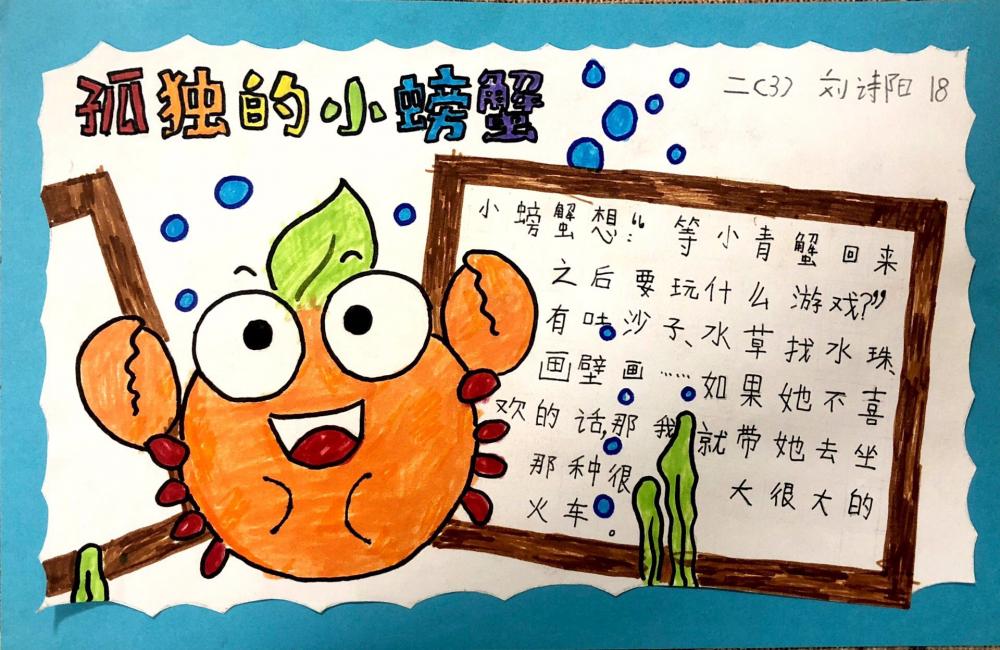 孤独的小螃蟹
二(3) 刘诗阳 18
小螃蟹想:“等小青蟹回来
之后要玩什么游戏?”
有哇沙子、水草找水珠、
画壁画……如果她不喜
欢的话,那我就带她去坐
那种很大很大的
火车。